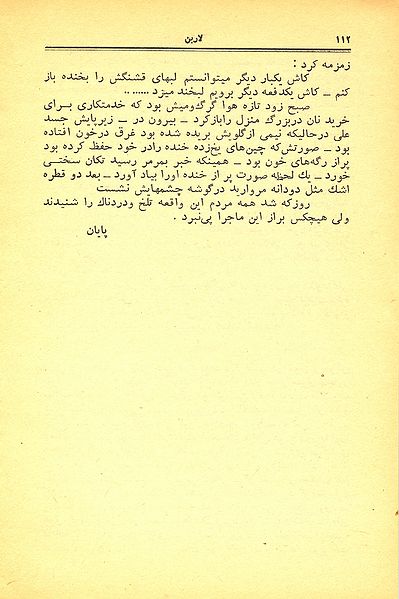 ۱۱۲
لاربن
زمزمه کرد :
کاش یکبار دیگر میتوانستم لبهای قشنگش را بخنده باز
کنم ــ کاش یکدفعه دیگر برویم لبخند میزد ........
صبح زود تازه هوا گرگ‌ومیش بود که خدمتکاری برای
خرید نان دربزرگ منزل رابازکرد ــ بیرون در ــ زیرپایش جسد
علی درحالیکه نیمی ازگلویش بریده شده بود غرق درخون افتاده
بود ــ صورتش‌که چین‌های یخ‌زده خنده رادر خود حفظ کرده بود
پراز رگه‌های خون بود ــ همینکه خبر بمرمر رسید تکان سختی
خورد ــ یك لحظه صورت پر از خنده اورا بیاد آورد ــ بعد دو قطره
اشك مثل دودانه مروارید درگوشه چشمهایش نشست
روزکه شد همه مردم این واقعه تلخ ودردناك را شنیدند
ولی هیچکس براز این ماجرا پی‌نبرد .
پایان